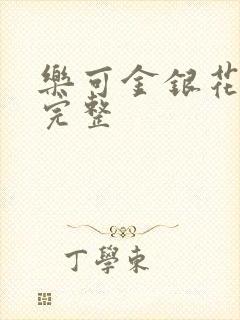 樂可金銀花
完整
丁學東